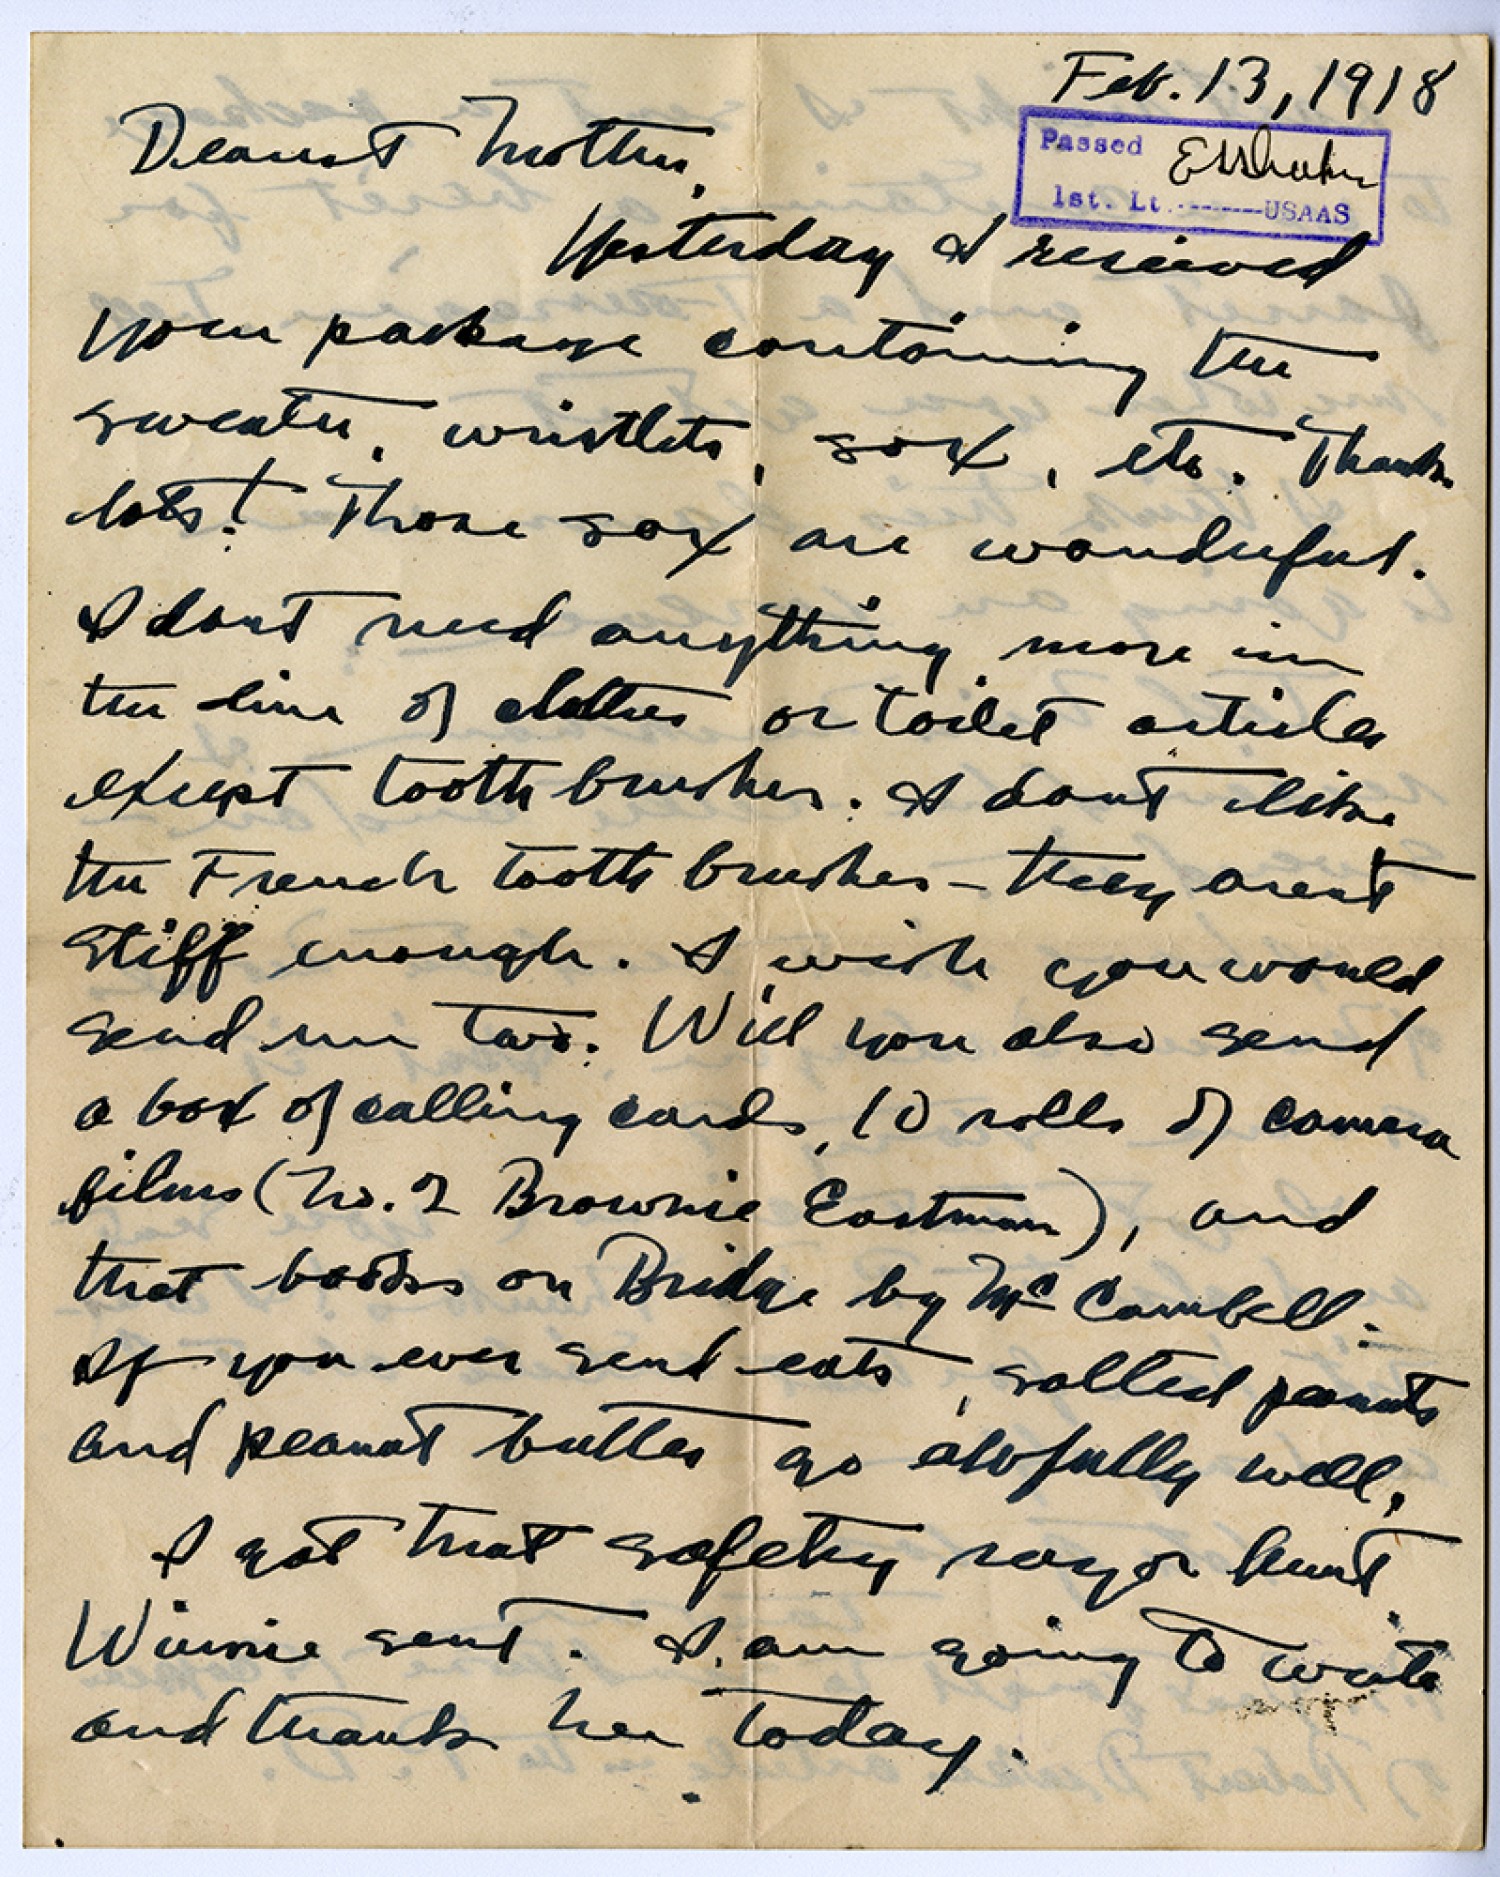 Feb. 13, 1918
Passed
1st. Lt.--------USAAS
Dearest Mother,
Yesterday I received
your package containing the
sweater, wristlets, sox, etc. Thanks
lots! Those sox are wonderful.
I dont need anything more in
the line of clothes or toilet articles
except tooth brushes. I dont like
the French tooth brushes – they arent
stiff enough. I wish you would
send me two. Will you also send
a box of calling cards, 10 rolls of camera
films (No. 2 Brownie Eastman), and
that books on Bridge by McCambell.
If you ever send eats, salted peanuts
and peanut butter go awfully well.
I got that safety razor Aunt
Winnie sent. I am going to write
and thank her today.